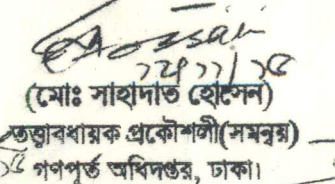 Hossain
(মোঃ সাহাদাত হোসেন)
তত্ত্বাবধায়ক প্রকৌশলী(সমন্বয়)
গণপূর্ত অধিদপ্তর, ঢাকা।